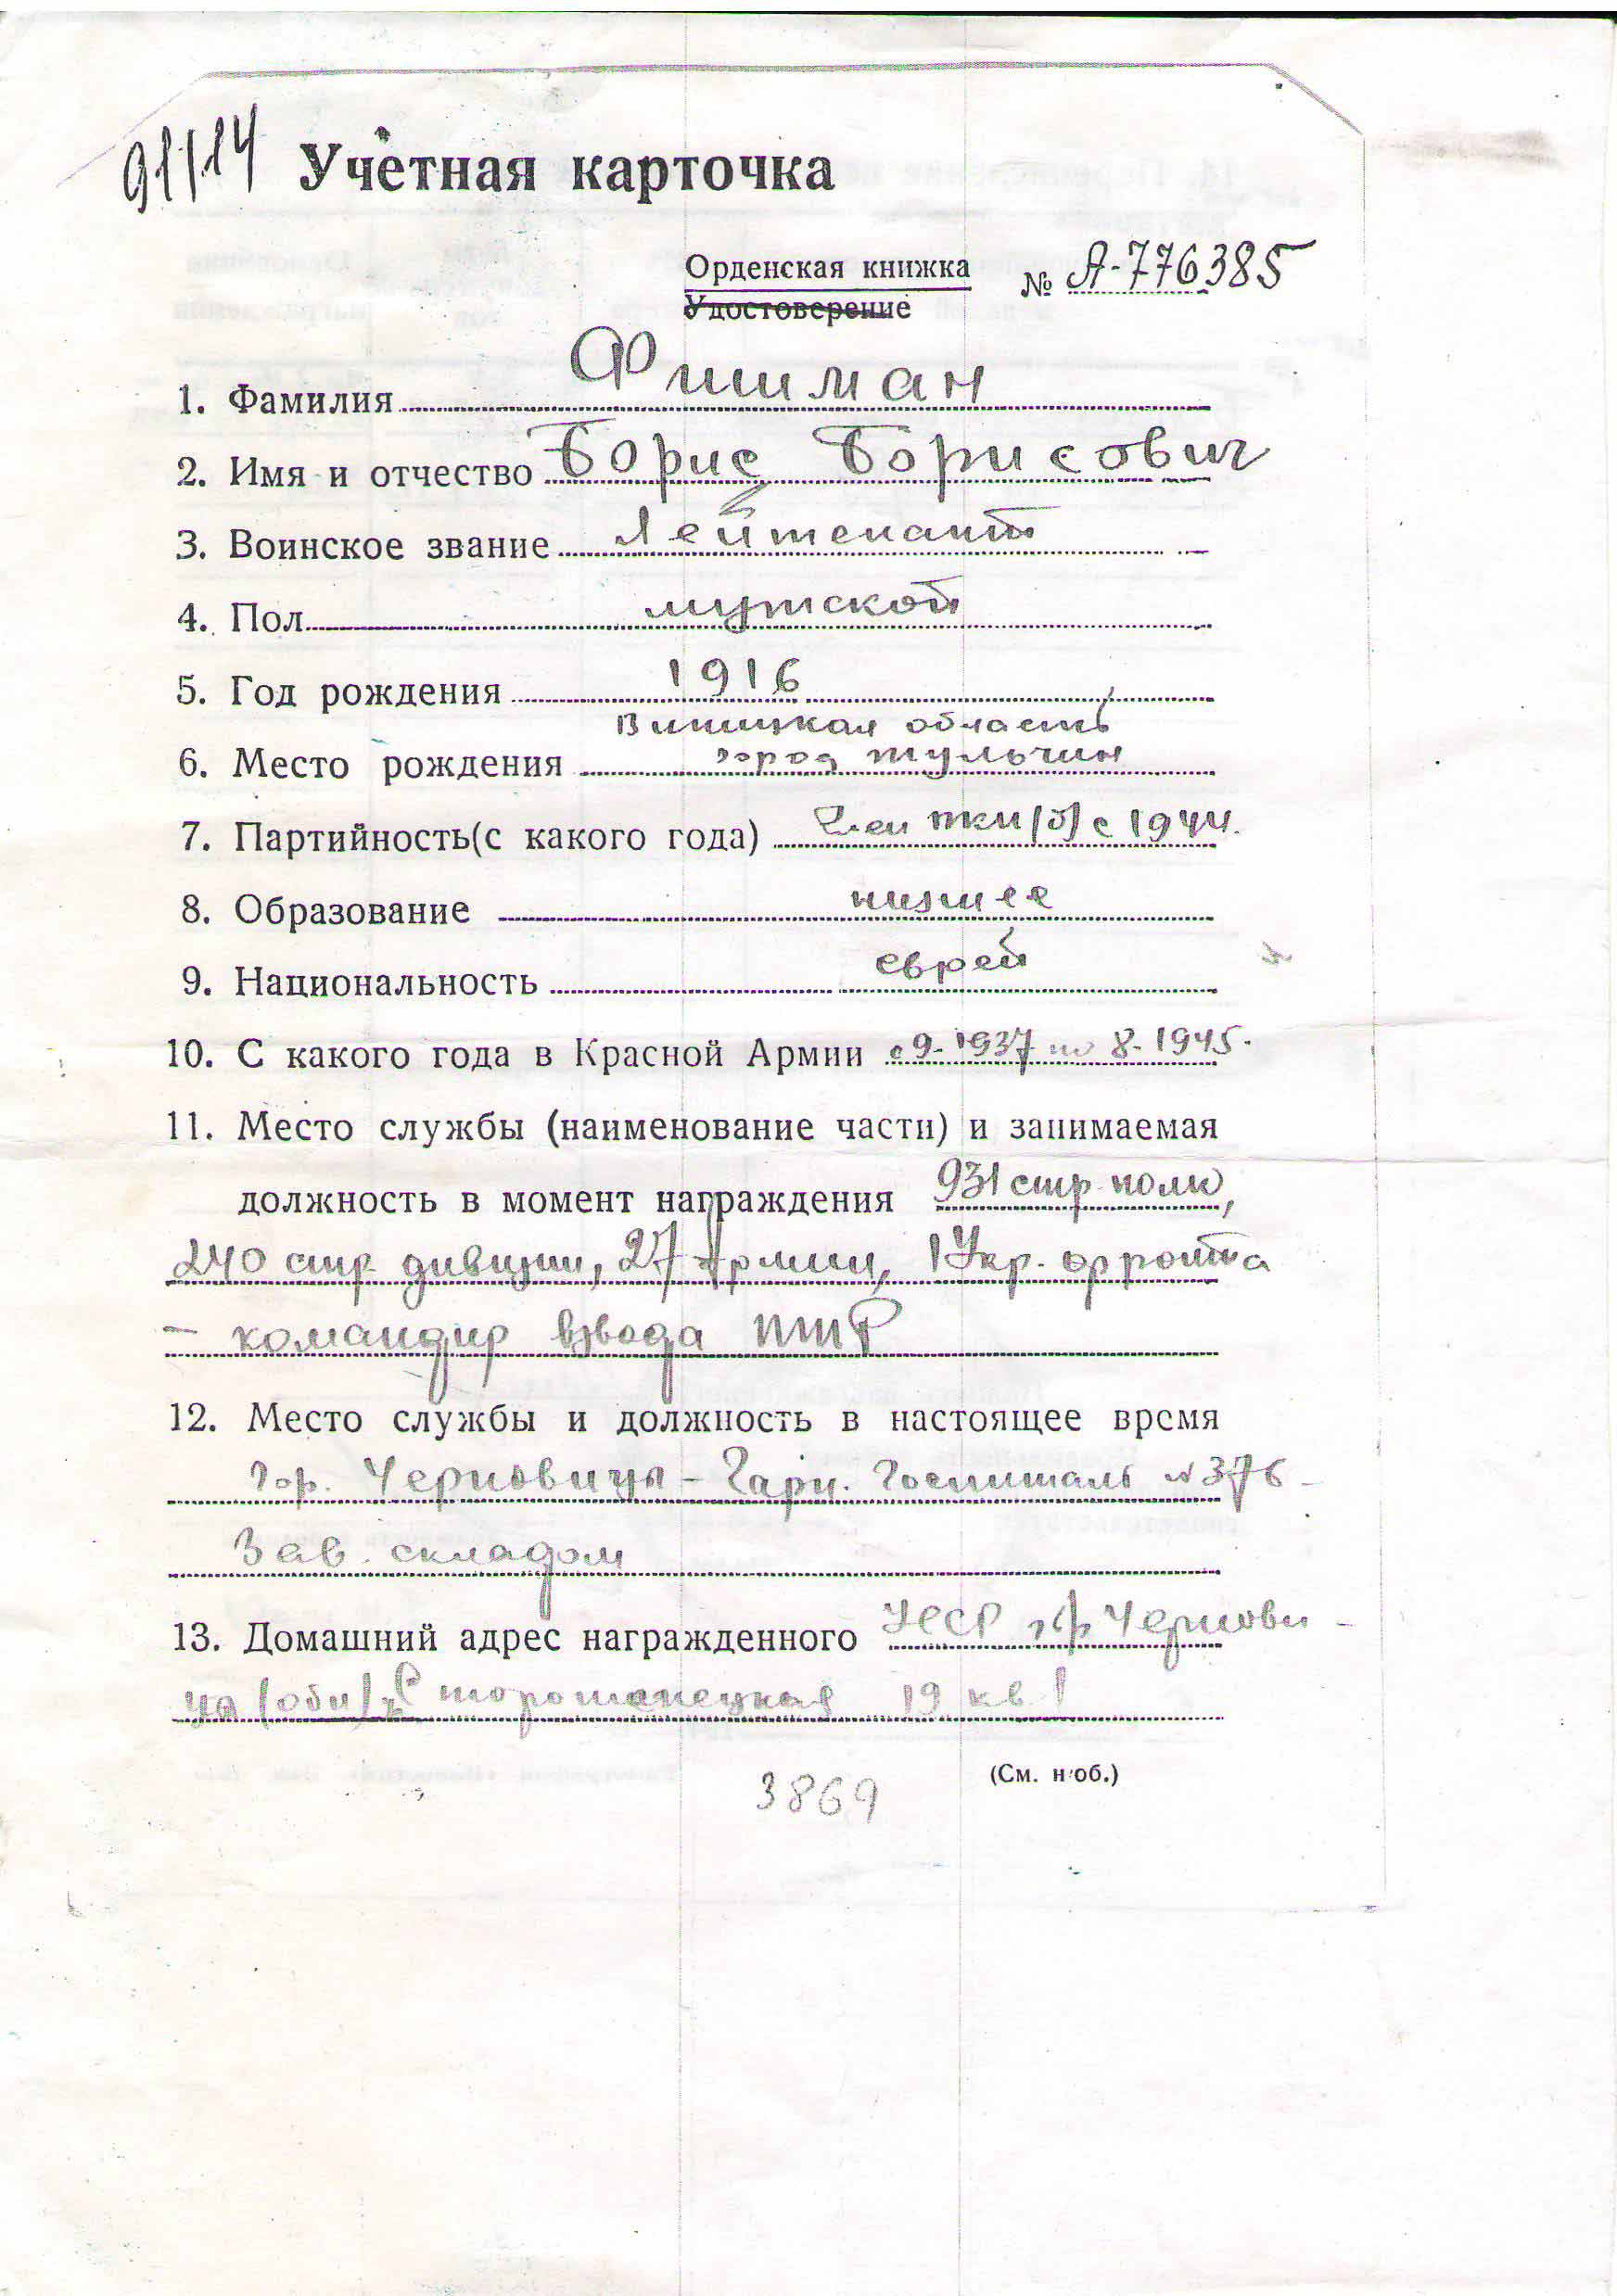 91/14 Учётная карточка
Орденская книжка № А-776385
Удостоверение
1. Фамилия Фишман
2. Имя и отчество Борис Борисович
3. Воинское звание Лейтенант
4. Пол мужской
5. Год рождения 1916
Виницкая область
6. Место рождения город Тульчин
7. Партийность(с какого года) Член ВКП(б) с 1944.
8. Образование низшее
9. Национальность еврей
10. С какого года в Красной Армии с 9-1937 по 8-1945.
11. Место службы (наименование части) и занимаемая
должность в момент награждения 931 стр полк,
240 стр. дивизии, 27 Армии, 1 Укр. фронта
– командир взвода ПТР
12. Место службы и должность в настоящее время
Гор. Черновицы – Гарн. Госпиталь № 376 –
Зав. складом
13. Домашний адрес награжденного УССР Черновi-
цы 19 кв 1
(См. н об.)
3869